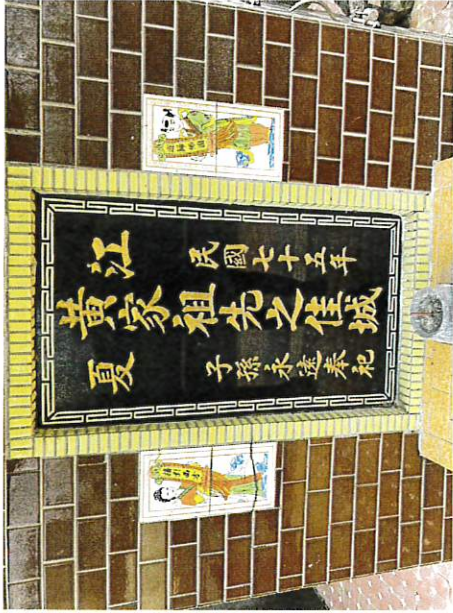 江夏
民國七十五年
黃家祖先之佳城
子孫永遠奉祀